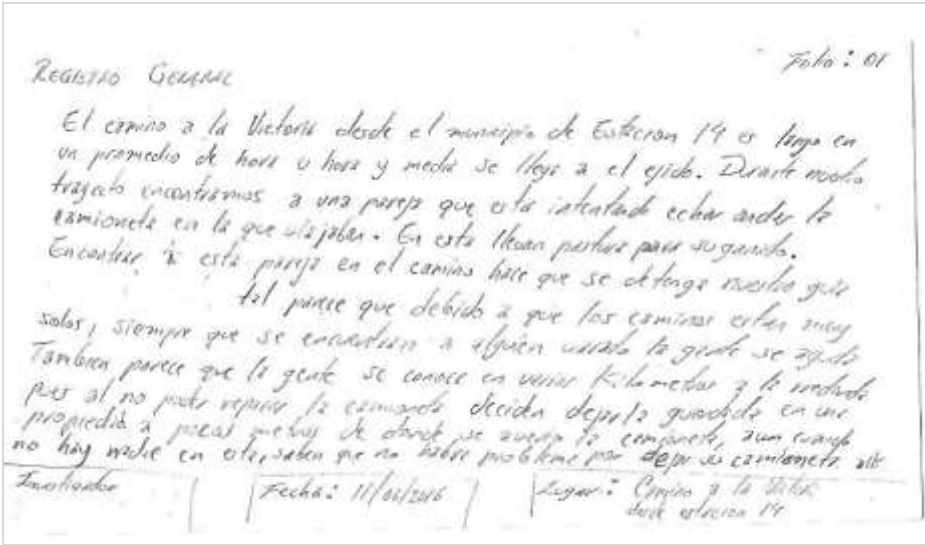 Folio: 01
REGISTRO GENERAL
El camino a la Victoria desde el municipio de Estacion 14 es largo en
un promedio de hora u hora y media se llega a el ejido. Durante nuestro
trayecto encontramos a una pareja que esta intentando echar andar la
camioneta en la que viajaban. En esta llevan pastura para su ganado.
Encontrar a esta pareja en el camino hace que se detenga nuestro guia
tal parece que debido a que los caminos estan muy
solos, siempre que se encuentran a alguien varado la gente se ayuda
Tambien parece que la gente se conoce en varios Kilometros a la redonda
pues al no poder reparar la camioneta deciden dejarla guardada en una
propiedad a pocos metros de donde se averia la camioneta, aun cuando
no hay nadie en esta, saben que no habra problema por dejar su camioneta
Fecha: 11/06/2016
Lugar: Camino a la Victoria
desde estacion 14